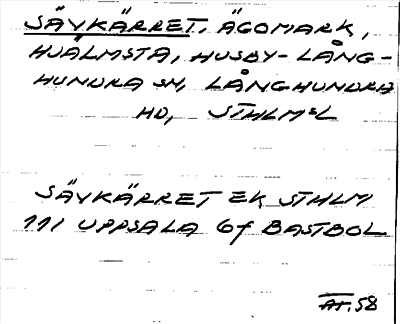 SÄVKÄRRET, ÄGOMARK,
HJÄLMSTA, HUSBY-LÅNG-
HUNDRA SN, LÅNGHUNDRA
HD, STHLMSL
SÄVKÄRRET EK STHLM
111 UPPSALA 6f BASTBOL
AT.58